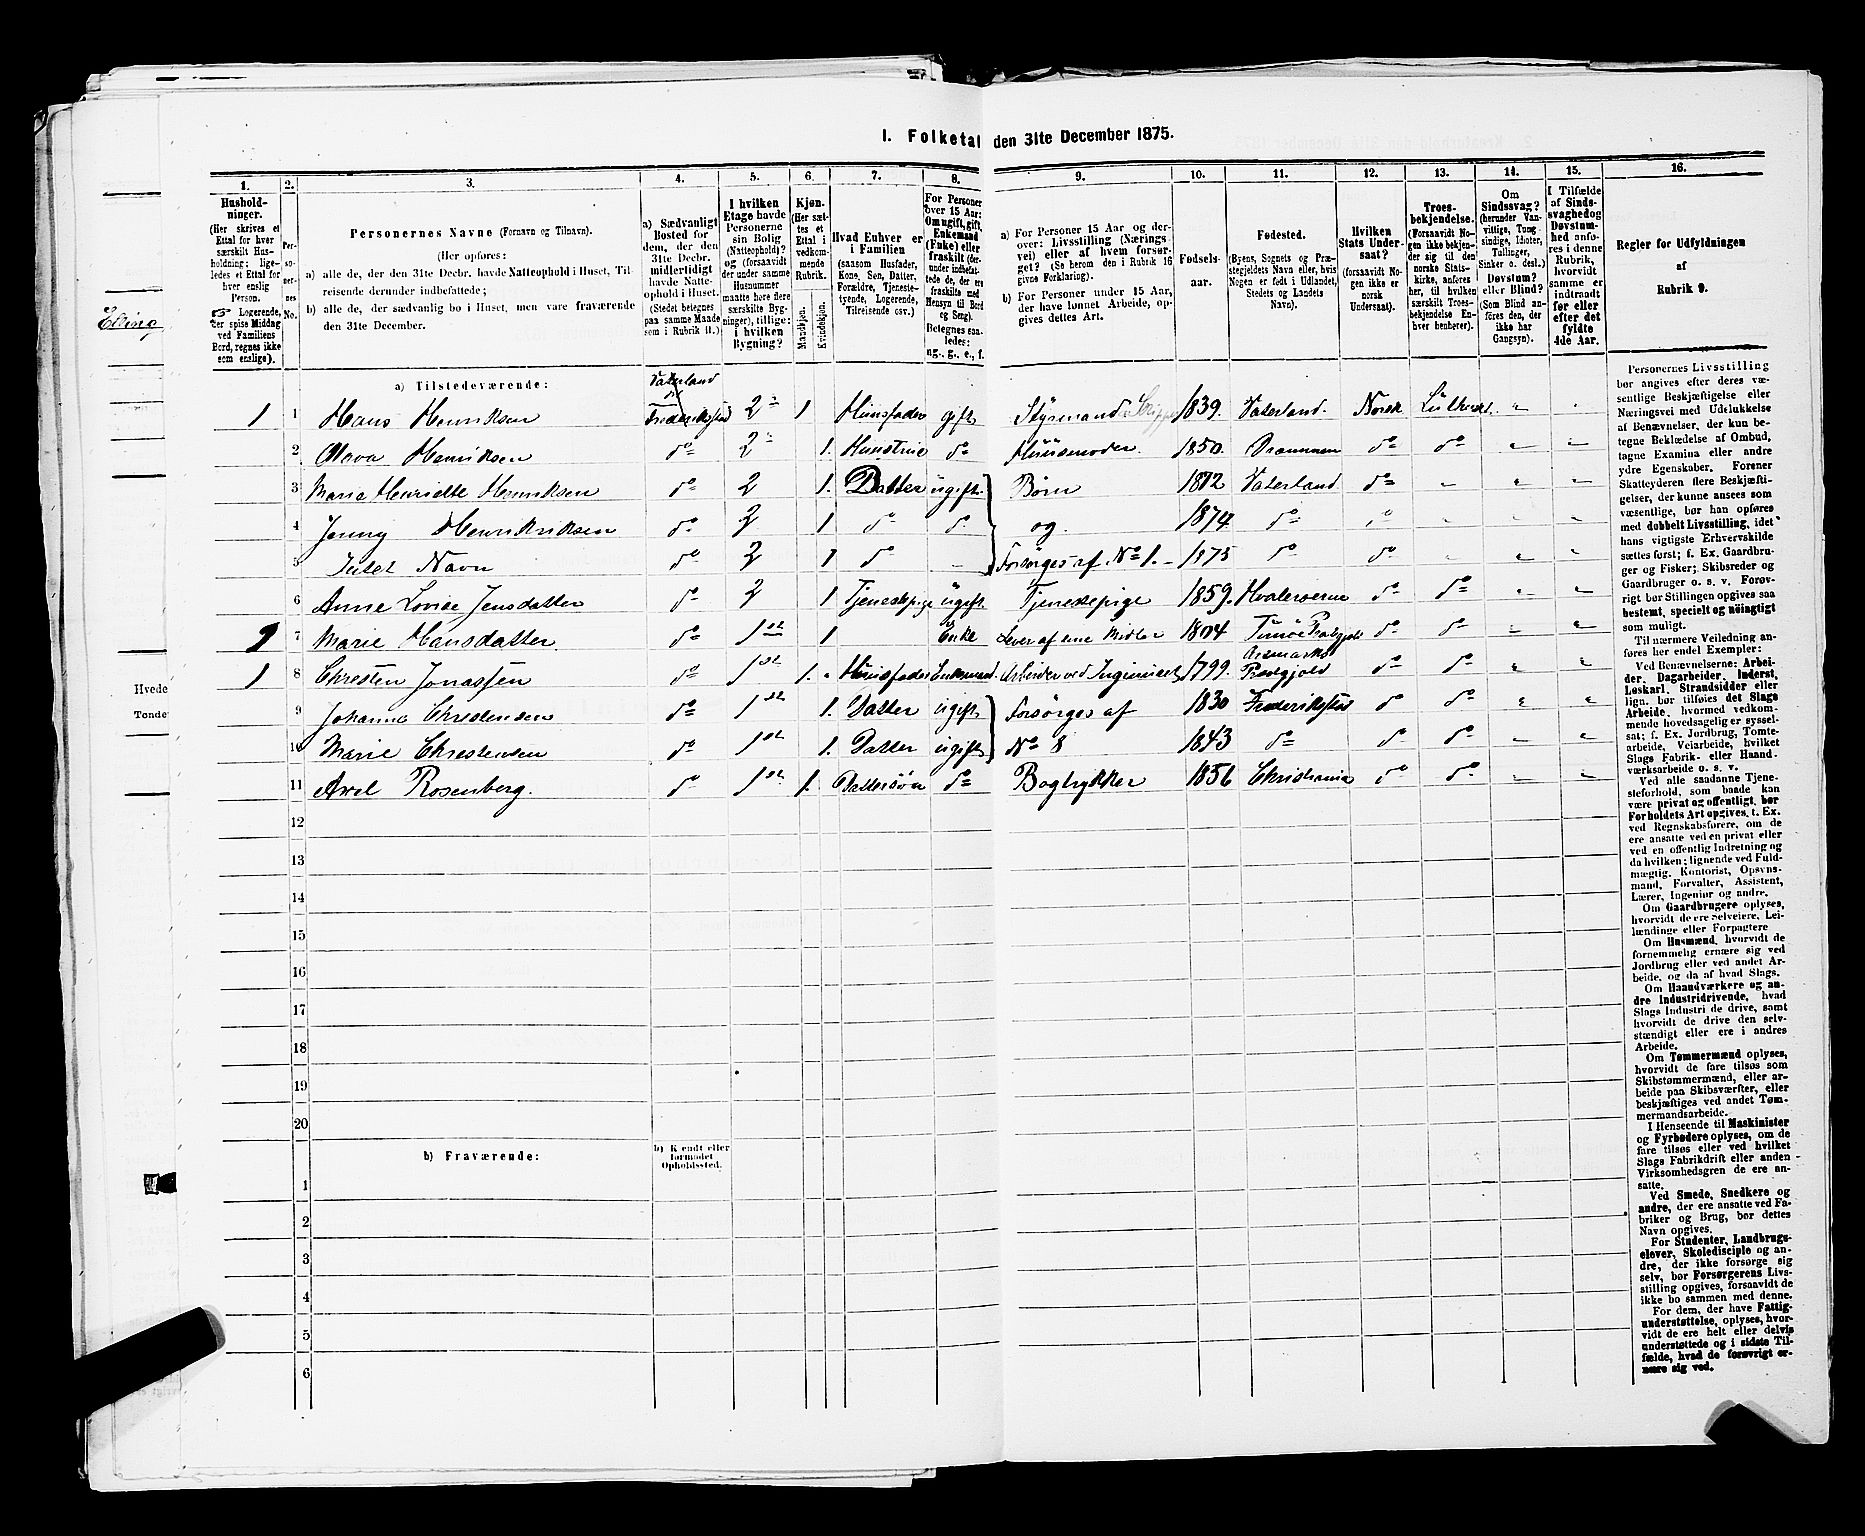 I. Folketal den 31te December 1875.
1. 2. 3. 4. 5. 6. 7. 8. 9. 10. 11. 12. 13. 14. 15. 16.
Hushold-
ninger.
(Her skrives et
Ettal for hver
særskilt Hus-
holdning; lige-
ledes et Ettal for
hver enslig
Person.
☞ Logerende,
der spise Middag
ved Familiens
Bord, regnes ikke
som enslige).
Per-
so-
ner-
nes
No.
Personernes Navne (Fornavn og Tilnavn).
(Her opføres:
a) alle de, der den 31te Decbr. havde Natteophold i Huset, Til-
reisende derunder indbefattede;
b) alle de, der sædvanlig bo i Huset, men vare fraværende
den 31te December.
a) Sædvanligt
Bosted for
dem, der den
31te Decbr.
midlertidigt
havde Natte-
ophold i Huset.
(Stedet betegnes
paa samme Maade
som i Rubrik 11.)
I hvilken
Etage havde
Personerne
sin Bolig
(Natteophold)?
og (forsaavidt
der under samme
Husnummer
maatte høre flere
særskilte Byg-
ninger), tillige:
i hvilken
Bygning?
Kjøn.
(Her sæt-
tes et
Ettal i
vedkom-
mende
Rubrik.
Mandkjøn.
Kvindekjøn.
Hvad Enhver er
i Familien
(saasom Husfader,
Kone, Søn, Datter,
Forældre, Tjeneste-
tyende, Logerende,
Tilreisende osv.)
For Personer
over 15 Aar:
Om ugift, gift,
Enkemand
(Enke) eller
fraskilt (der-
under indbefat-
tede de, der ere
fraskilte med
Hensyn til Bord
og Seng).
Betegnes saa-
ledes:
ug., g., e., f.
a) For Personer 15 Aar og der-
over: Livsstilling (Nærings-
vei) eller af hvem forsør-
get? (Se herom den i Rubrik 16
givne Forklaring).
b) For Personer under 15 Aar,
der have lønnet Arbeide, op-
gives dettes Art.
Fødsels-
aar.
Fødested.
(Byens, Sognets og Præ-
stegjeldets Navn eller, hvis
Nogen er født i Udlandet,
Stedets og Landets
Navn).
Hvilken
Stats Under-
saat?
(forsaavidt No-
gen ikke er
norsk
Undersaat).
Troes-
bekjendelse.
(Forsaavidt No-
gen ikke bekjen-
der sig til den
norske Stats-
kirke, anføres
her, til hvilken
særskilt Troes-
bekjendelse En-
hver henhører).
Om
Sindssvag?
(herunder Van-
vittige, Tung-
sindige, Idioter,
Tullinger,
Sinker o. desl.)
Døvstum?
eller Blind?
(Som Blind an-
føres den, der
ikke har
Gangsyn).
I Tilfælde
af Sinds-
svaghed og
Døvstum-
hed anfø-
res i denne
Rubrik,
hvorvidt
samme er
indtraadt
før eller
efter det
fyldte
4de Aar.
Regler for Udfyldningen
af
Rubrik 9.
a) Tilstedeværende:
Vaterland
1 1 Hans Henriksen Frederikstad 2 1 Huusfader gift Styrmand 1839. Vaterland. Norsk Luthersk
2 Olava Henriksen do 2 1. Hustrue do Huusmoder 1850. Drammen do do
3 Marie Henriette Henriksen do 2 1. Datter ugift Børn 1872 Vaterland do
4 Jenny Henrikriksen do 2 1 do do og 1874 do do
5 Intet Navn do 2 1 do – Forsørges af No 1. 1875 do do
6 Anne Lovise Jensdatter do 2 1 Tjenestepige ugift Tjenestepige 1859. Hvaløerne do do
7 Marie Hansdatter do 1st 1 Enke Lever af sine Midler 1804 do do
1 8 Christen Jonassen do 1st 1. Huusfader Enkemand. 1799. Aremarks Præstgjeld do do
9 Johanne Christensen do 1st 1. Datter ugift Forsørges af 1830 Frederikstad do do
10 Marie Christensen do 1st 1. Datter ugift No 8 1843 do do do
11 Axel Rosenberg. do 1st 1. Dattersøn do Bogtrykker 1856 Christiania do do
12
13
14
15
16
17
18
19
20
b) Fraværende:
b) Kjendt eller
formodet
Opholdssted.
1
2
3
4
5
6
Personernes Livsstilling
bør angives efter deres væ-
sentlige Beskjæftigelse eller
Næringsvei med Udelukkelse
af Benævnelser, der kun be-
tegne Beklædelse af Ombud,
tagne Examina eller andre
ydre Egenskaber. Forener
Skatteyderen flere Beskjæfti-
gelser, der kunne ansees som
væsentlige, bør han opføres
med dobbelt Livsstilling, idet
hans vigtigste Erhvervskilde
sættes først; f. Ex. Gaardbru-
ger og Fisker; Skibsreder og
Gaardbruger o. s. v. Forøv-
rigt bør Stillingen opgives saa
bestemt, specielt og nøiagtigt
som muligt.
Til nærmere Veiledning an-
føres her endel Exempler:
Ved Benævnelserne: Arbei-
der, Dagarbeider, Inderst,
Løskarl, Strandsidder eller
lign. bør tilføies det Slags
Arbeide, hvormed vedkom-
mende hovedsagelig er syssel-
sat; f. Ex. Jordbrug, Tomte-
arbeide, Veiarbeide, hvilket
Slags Fabrik- eller Haand-
værksarbeide o. s. v.
Ved alle saadanne Tjene-
steforhold, som baade kan
være privat og offentligt, bør
Forholdets Art opgives, t. Ex.
ved Regnskabsførere, om de
ere ansatte ved en privat eller
ved en offentlig Indretning og
da hvilken; lignende ved Fuld-
mægtig, Kontorist, Opsyns-
mand, Forvalter, Assistent,
Lærer, Ingeniør og andre.
Om Gaardbrugere oplyses,
hvorvidt de ere Selveiere, Lei-
lændinge eller Forpagtere
Om Husmænd, hvorvidt de
fornemmelig ernære sig ved
Jordbrug eller ved andet Ar-
beide, og da af hvad Slags.
Om Haandværkere og an-
dre Industridrivende, hvad
Slags Industri de drive, samt
hvorvidt de drive den selv-
stændigt eller ere i andres
Arbeide.
Om Tømmermænd oplyses,
hvorvidt de fare tilsøs som
Skibstømmermænd, eller ar-
beide paa Skibsværfter, eller
beskjæftiges ved andet Tøm-
mermandsarbeide.
I Henseende til Maskinister
og Fyrbødere oplyses, om de
fare tilsøs eller ved hvilket
Slags Fabrikdrift eller anden
Virksomhedsgren de ere an-
satte.
Ved Smede, Snedkere og
andre, der ere ansatte ved Fa-
briker og Brug, bør dettes
Navn opgives.
For Studenter, Landbrugs-
elever, Skoledisciple og an-
dre, der ikke forsørge sig
selv, bør Forsørgerens Livs-
stilling opgives, forsaavidt de
ikke bo sammen med denne.
For dem, der have Fattig-
understøttelse, oplyses, hvor-
vidt de ere helt eller delvis
understøttede og i sidste Til-
fælde, hvad de forøvrigt er-
nære sig ved.
Hvede
Tønder